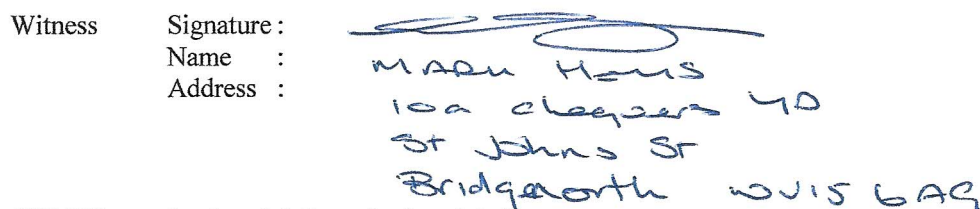 Witness Signature :
Name :
Address :
MARK
10a chequers YD
St Johns St
Bridgnorth WV15 6AG